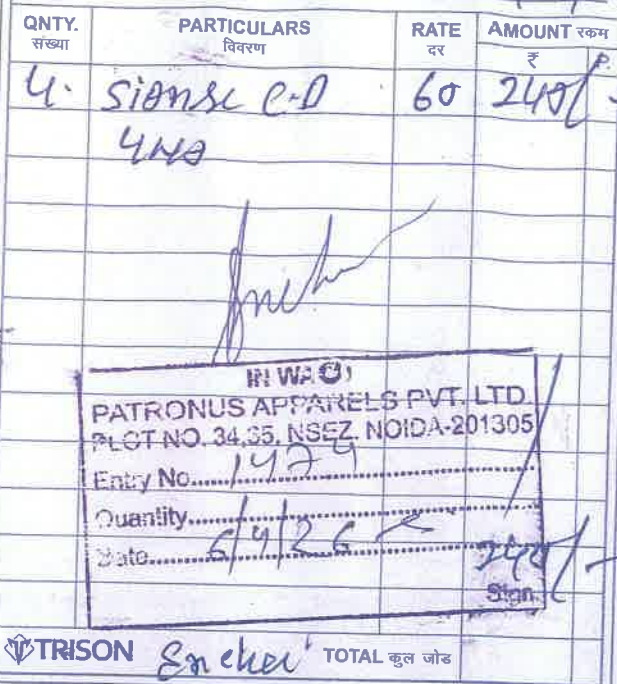 QNTY. PARTICULARS RATE AMOUNT रकम
संख्या विवरण दर ₹ P.
4. C-D 60 240/-
INWARD
PATRONUS APPARELS PVT. LTD.
PLOT NO. 34,35, NSEZ, NOIDA-201305
Entry No. 1474
Quantity
Date 6/4/26
240/-
Sign
TRISON TOTAL कुल जोड